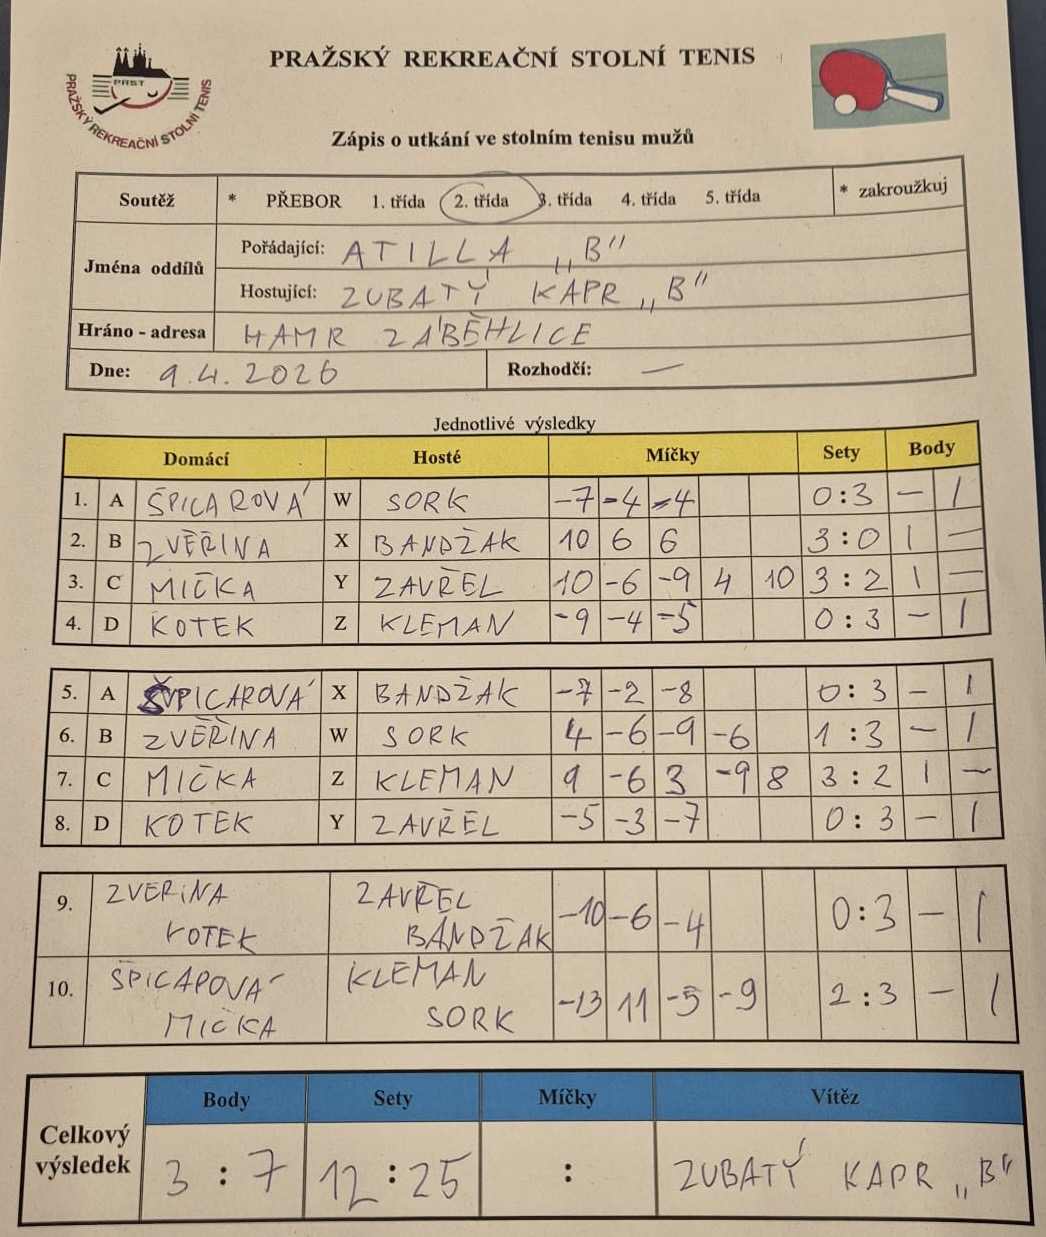 PRAŽSKÝ REKREAČNÍ STOLNÍ TENIS
PRST
PRAŽSKÝ REKREAČNÍ STOLNÍ TENIS
Zápis o utkání ve stolním tenisu mužů
Soutěž * PŘEBOR 1. třída 2. třída 3. třída 4. třída 5. třída * zakroužkuj
Jména oddílů
Pořádající: ATILLA „B"
Hostující: ZUBATÝ KAPR „B"
Hráno - adresa HAMR ZÁBĚHLICE
Dne: 9.4.2026 Rozhodčí: —
Jednotlivé výsledky
Domácí Hosté Míčky Sety Body
1. A ŠPICAROVÁ W SORK -7 -4 -4 0:3 — 1
2. B ZVĚŘINA X BANDŽAK 10 6 6 3:0 1 —
3. C MIČKA Y ZAVŘEL 10 -6 -9 4 10 3:2 1 —
4. D KOTEK Z KLEMAN -9 -4 -5 0:3 — 1
5. A ŠPICAROVÁ X BANDŽAK -7 -2 -8 0:3 — 1
6. B ZVĚŘINA W SORK 4 -6 -9 -6 1:3 — 1
7. C MIČKA Z KLEMAN 9 -6 3 -9 8 3:2 1 —
8. D KOTEK Y ZAVŘEL -5 -3 -7 0:3 — 1
9. ZVĚŘINA ZAVŘEL -10 -6 -4 0:3 — 1
KOTEK BANDŽAK
10. ŠPICAROVÁ KLEMAN -13 11 -5 -9 2:3 — 1
MIČKA SORK
Celkový výsledek
Body Sety Míčky Vítěz
3:7 12:25 : ZUBATÝ KAPR „B"